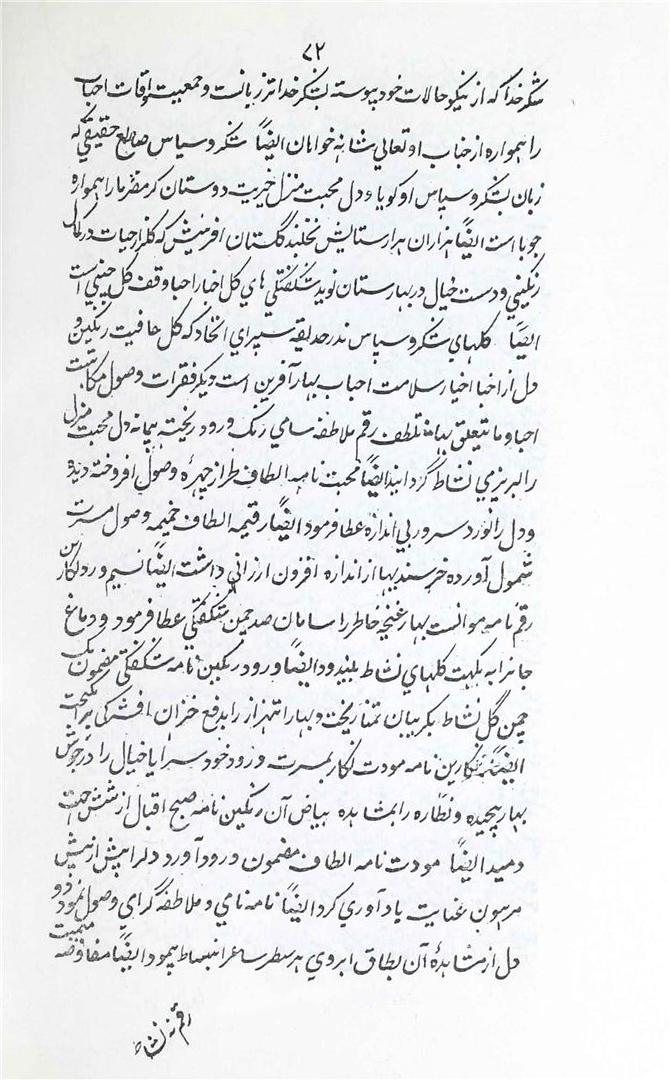 ٧٢
شکر خدا که از نیکو حالات خود پیوسته بشکر خدا تر زبانت و جمعیت اوقات احباب
را همواره از جناب او تعالی شانه خواهان ایضاً شکر و سپاس صانع حقیقی که
زبان بشکر و سپاس او کویا و دل محبت منزل خیریت دوستان کرمفرما را همواره
جویا است ایضاً هزاران هزار ستایش نخلبند گلستان افرینش که گلزار حیات در کمال
رنگینی و دست خیال در بهارستان نوید شگفتگی های گل اخبار احبا وقف گل چینی است
ایضاً گلهای شکر و سپاس نذر حدیقه سپرای اتحاد که گل عافیت رنگین و
دل از اخبار سلامت احباب بهار آفرین است دیگر فقرات وصول مکاتیب
احبا و ما یتعلق بها تلطف رقم ملاطفه سامی رنگ ورود ریخته پیمانه دل محبت منزل
را لبریزی نشاط گردانید ایضاً محبت نامه الطاف طراز چهره وصول افروخته دیده
و دل را نور و سرور بی اندازه عطا فرمود ایضاً رقیمه الطاف ضمیمه وصول مسرت
شمول آورده خرسندیها از اندازه افزون ارزانی داشت ایضاً نسیم ورود نگارین
رقم نامه موانست بهار غنچه خاطر را سامان صد چمن شگفتگی عطا فرمود و دماغ
جانرا به نکهت گلهای نشاط ایضاً ورود رنگین نامه شگفتگی مضمون یک
چمن گل نشاط بگریبان تمنا ریخت و بهار اهتزاز را بدفع خزان افسردگی
ایضاً نگارین نامه مودت نگار بمسرت ورود خود سراپا خیال را در جوش
بهار پیچیده و نظاره را بمشاهده بیاض آن رنگین نامه صبح اقبال از شش جهت
دمید ایضاً مودت نامه الطاف مضمون ورود آورد دلرا بیش از پیش
مرهون عنایت یاد آوری کرد ایضاً نامه نامی و ملاطفه گرامی وصول نمود و
دل از مشاهدهٔ آن بطاق ابروی هر سطر ساغر انبساط پیمود ایضاً مفاوضه میمنت
رقم نشاط